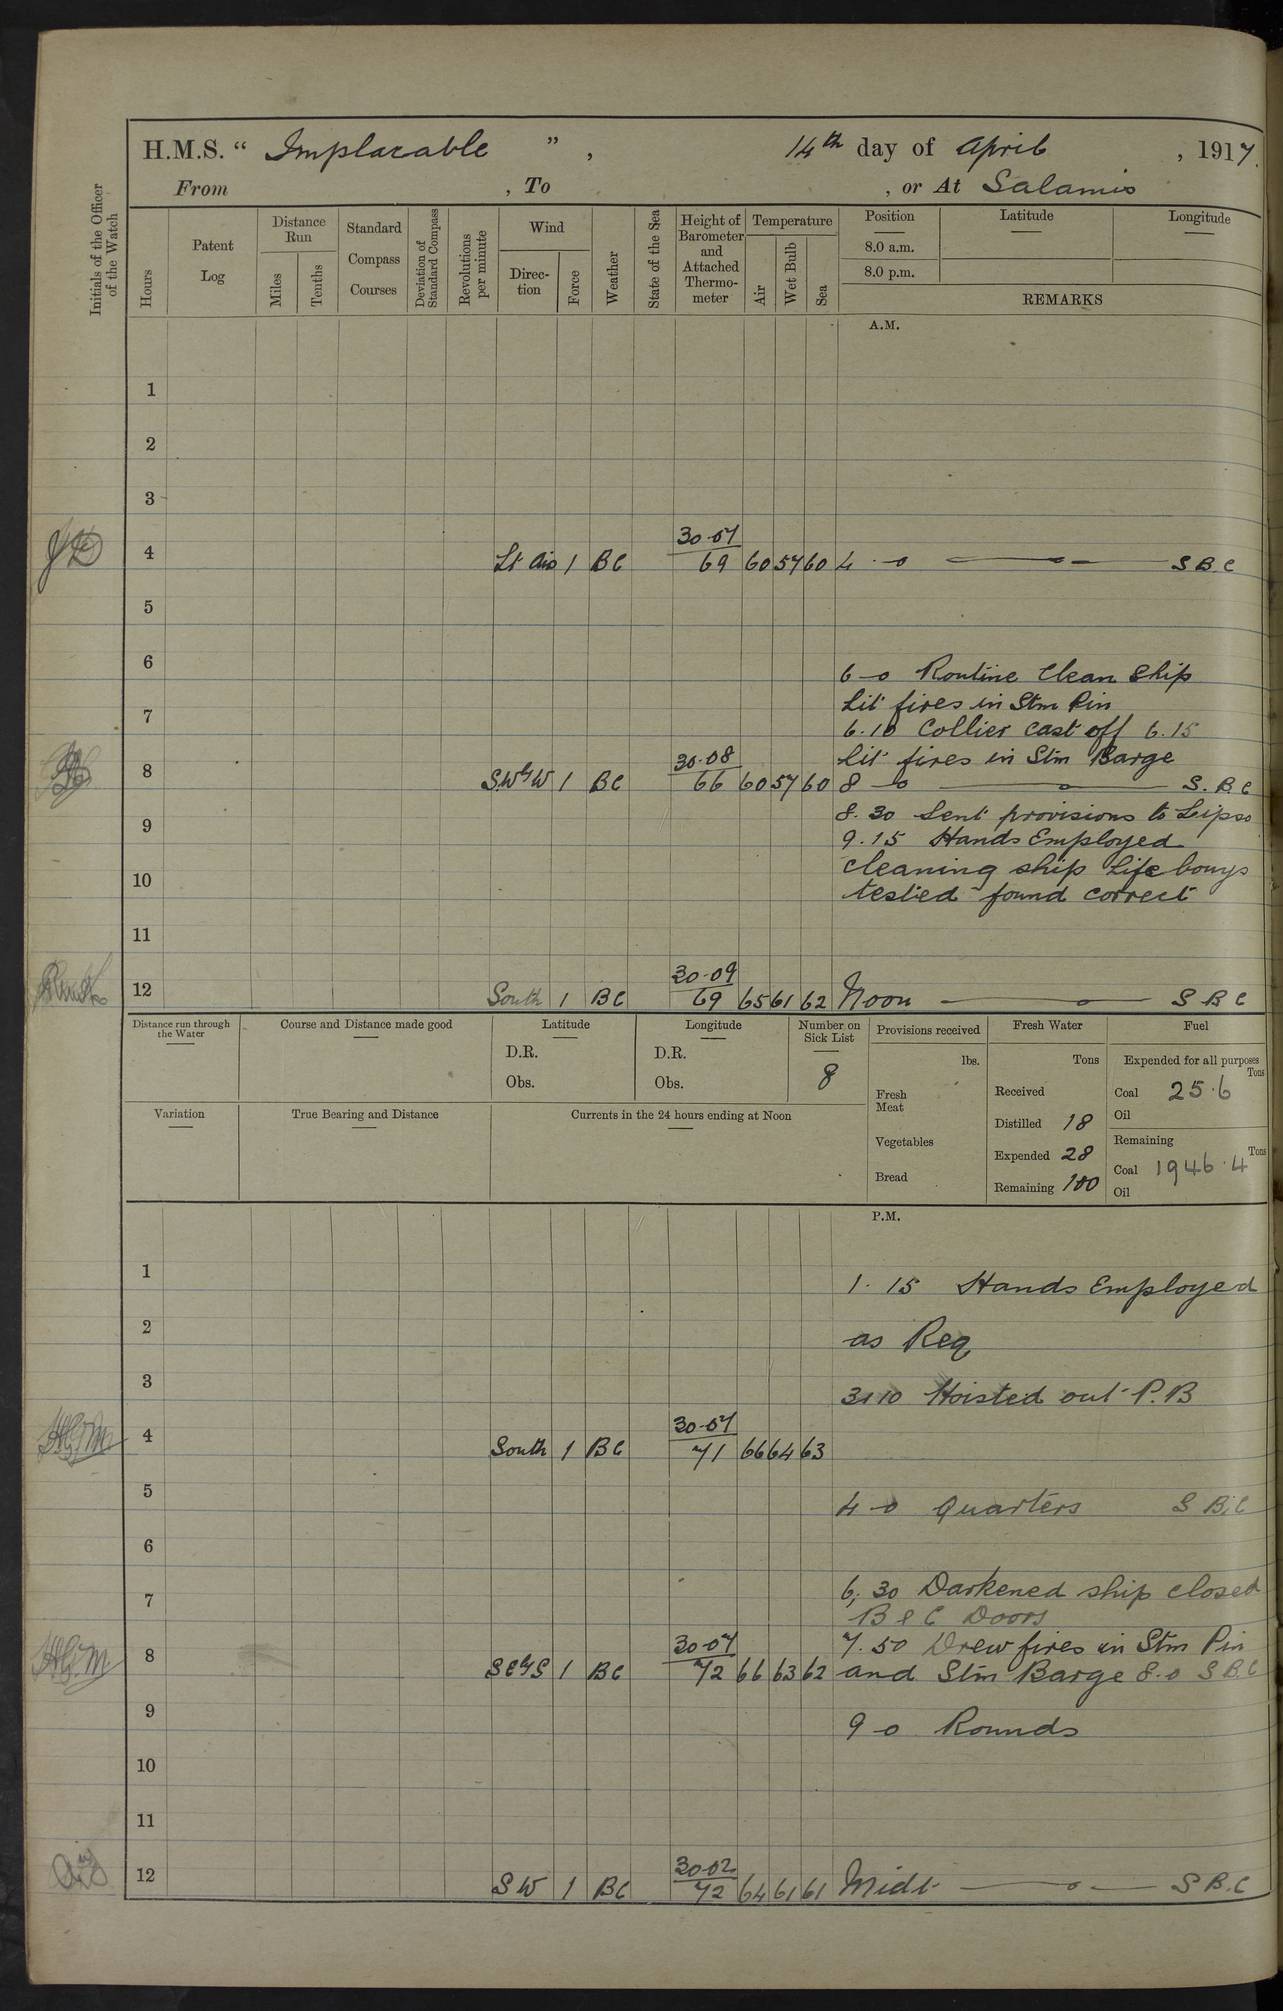 H.M.S. “ Implacable ” , 14th day of April , 1917.
From , To , or At Salamis
Initials of the Officer of the Watch
Hours
Patent Log
Distance Run
Miles
Tenths
Standard Compass Courses
Deviation of Standard Compass
Revolutions per minute
Wind
Direc-tion
Force
Weather
State of the Sea
Height of Barometer and Attached Thermo-meter
Temperature
Air
Wet Bulb
Sea
Position
8.0 a.m.
8.0 p.m.
Latitude
Longitude
REMARKS
A.M.
1
2
3
30·07
4 Lt Air 1 BC 69 60 57 60 4 · 0 S B.C
5
6
6-0 Routine Clean Ship
Lit fires in Stm Pin
7
6.10 Collier cast off 6.15
Lit fires in Stm Barge
30·08
8 S.W by W 1 BC 66 60 57 60 8 - 0 S. B.C
8.30 Sent provisions to Lipso
9
9.15 Hands Employed
cleaning ship Life bouys
10
tested found correct
11
30·09
12 South 1 BC 69 65 61 62 Noon S B C
Distance run through the Water
Course and Distance made good
Latitude
D.R.
Obs.
Longitude
D.R.
Obs.
Number on Sick List
8
Provisions received
lbs.
Fresh Meat
Vegetables
Bread
Fresh Water
Tons
Received
Distilled 18
Expended 28
Remaining 100
Fuel
Expended for all purposes
Tons
Coal 25·6
Oil
Remaining
Tons
Coal 1946·4
Oil
Variation
True Bearing and Distance
Currents in the 24 hours ending at Noon
P.M.
1
1.15 Hands Employed
2
as Req
3
3.10 Hoisted out P.B
30·07
4 South 1 BC 71 66 64 63
5
4-0 Quarters S B.C
6
6.30 Darkened ship closed
7
B & C Doors
7.50 Drew fires in Stm Pin
30·07
8 S E by S 1 BC 72 66 63 62 and Stm Barge 8.0 S B.C
9
9-0 Rounds
10
11
30·02
12 S W 1 BC 72 64 61 61 Midt S B.C